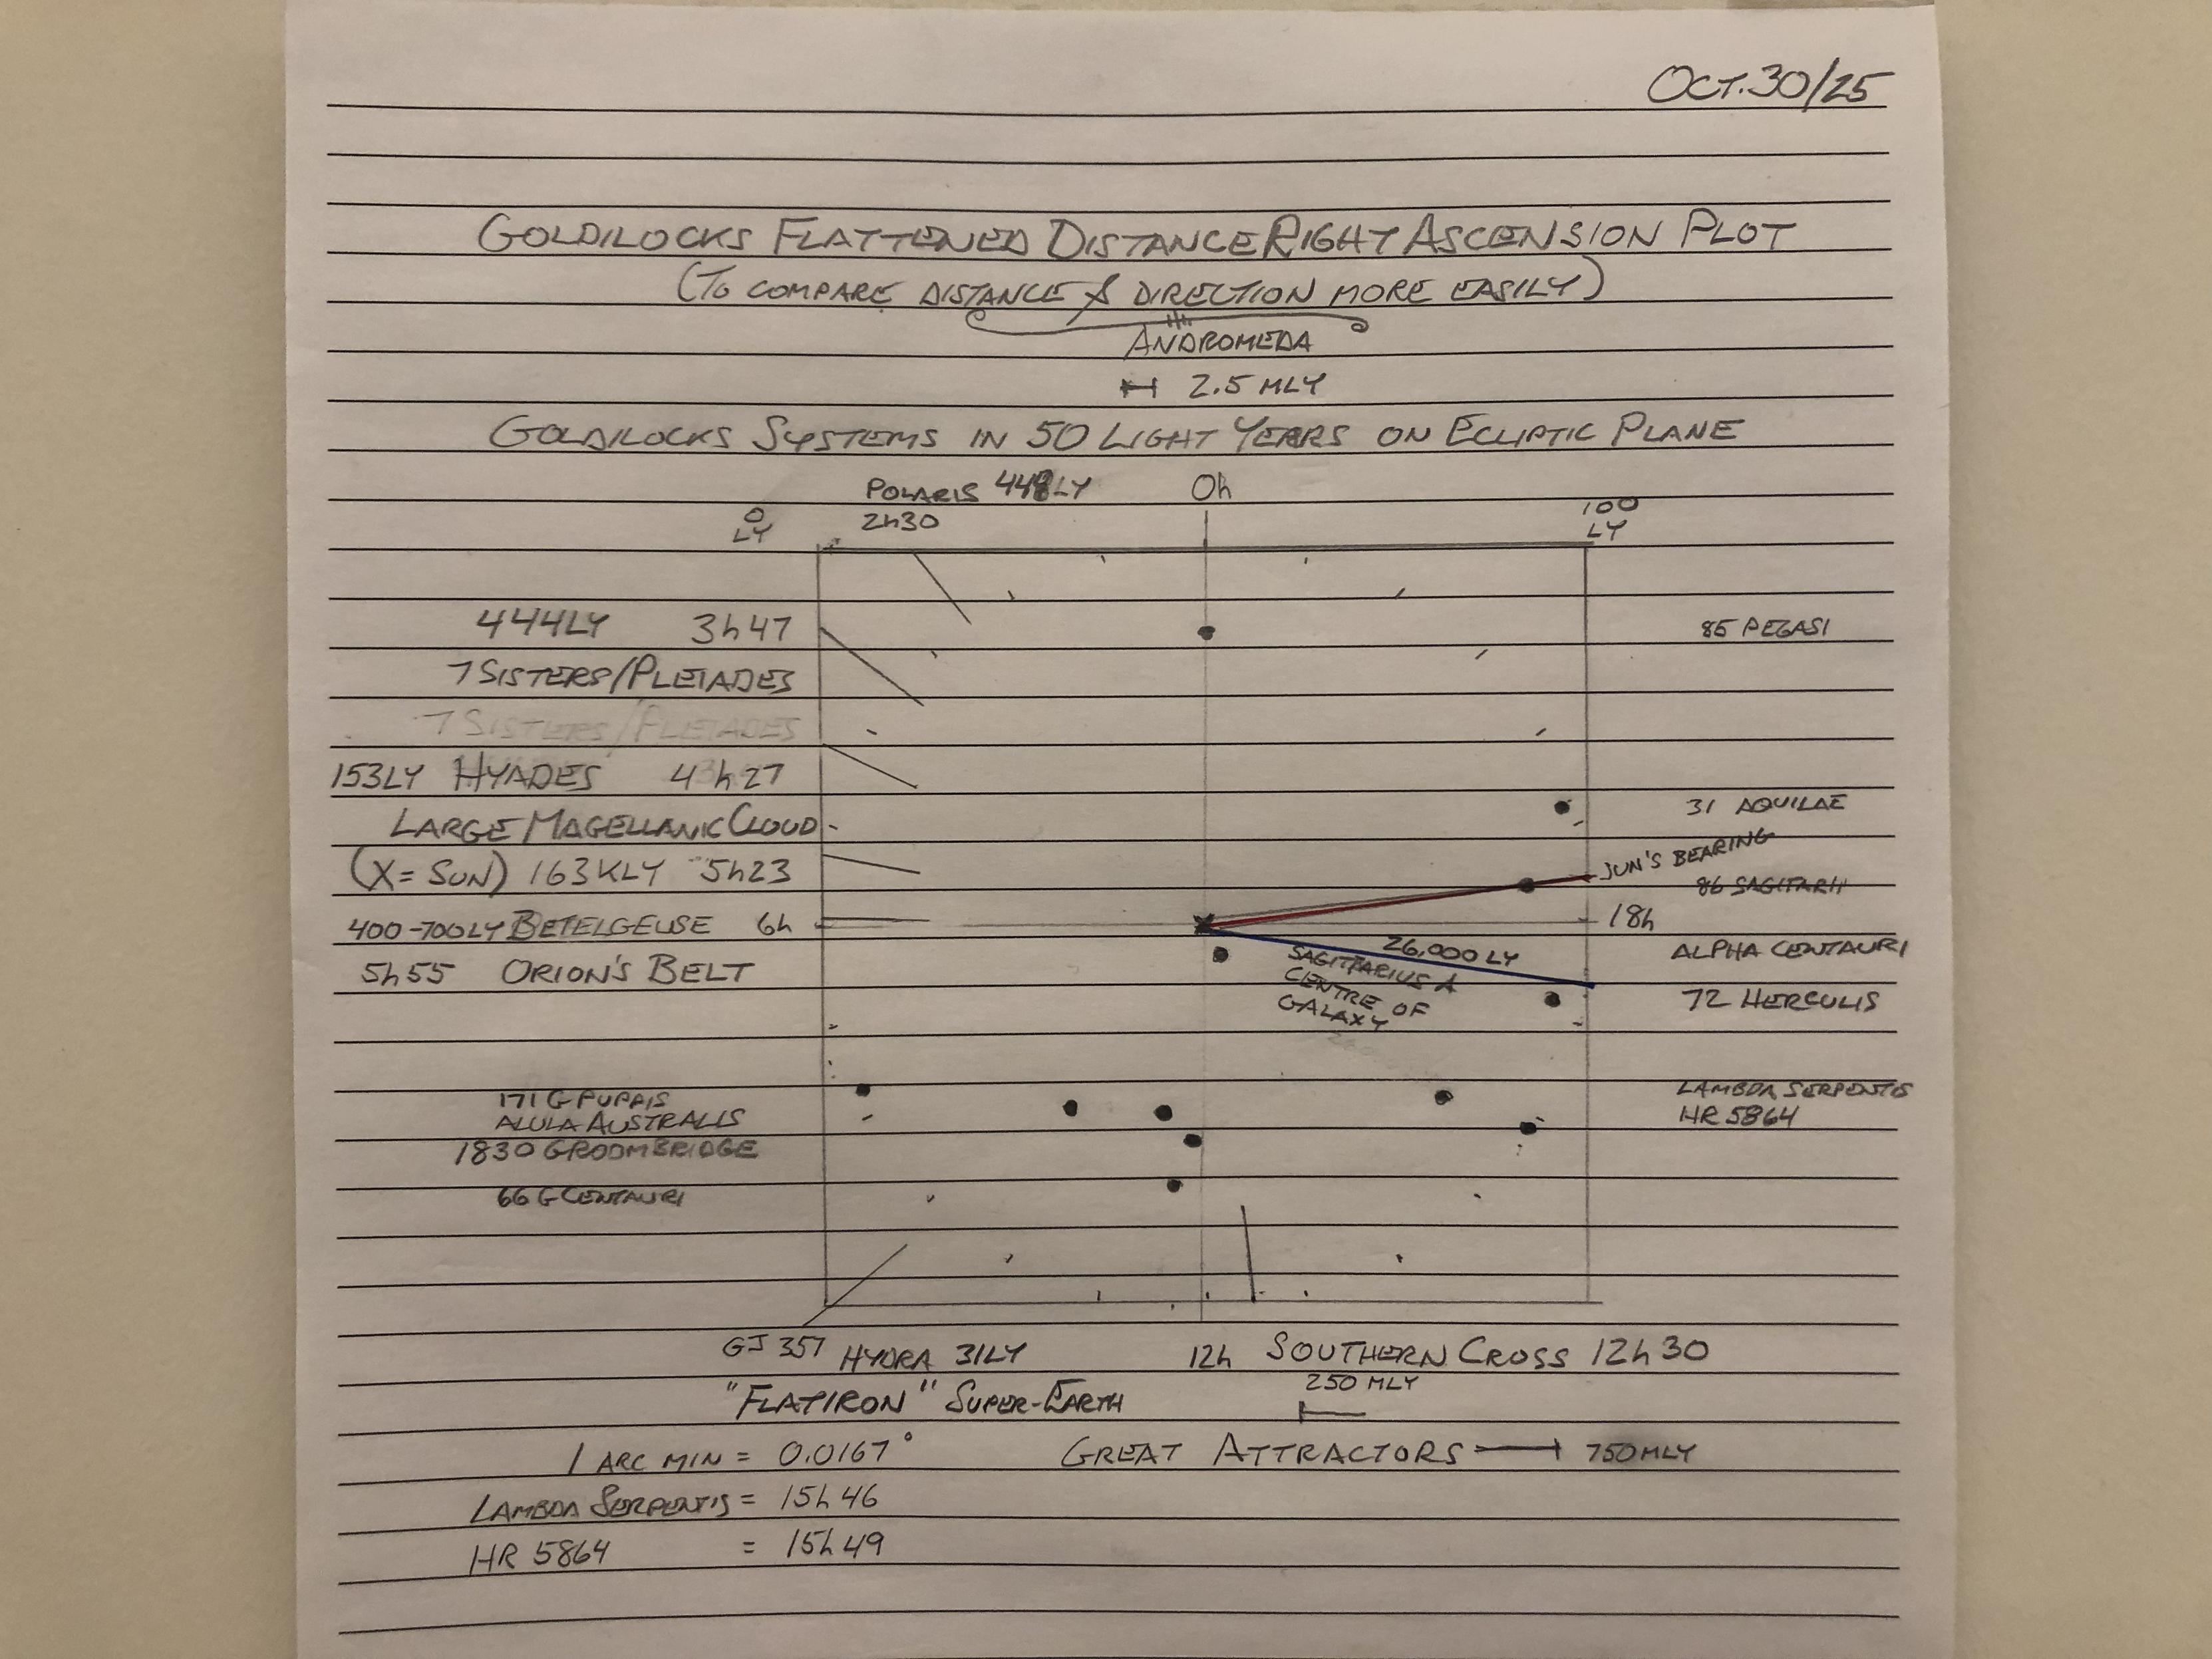 OCT.30/25
GOLDILOCKS FLATTENED DISTANCE RIGHT ASCENSION PLOT
(TO COMPARE DISTANCE & DIRECTION MORE EASILY)
ANDROMEDA
2.5 MLY
GOLDILOCKS SYSTEMS IN 50 LIGHT YEARS ON ECLIPTIC PLANE
POLARIS 448LY
2h30
0h
0
LY
100
LY
444LY 3h47
7 SISTERS/PLEIADES
7 SISTERS/PLEIADES
153LY HYADES 4h27
LARGE MAGELLANIC CLOUD
(X = SUN) 163KLY 5h23
400-700LY BETELGEUSE 6h
5h55 ORION'S BELT
171 G PUPPIS
ALULA AUSTRALIS
1830 GROOMBRIDGE
66 G CENTAURI
85 PEGASI
31 AQUILAE
SUN'S BEARING
86 SAGITARII
18h
ALPHA CENTAURI
26,000 LY
SAGITTARIUS A
CENTRE OF
GALAXY
72 HERCULIS
LAMBDA SERPENTIS
HR 5864
GJ 357 HYDRA 31LY
12h SOUTHERN CROSS 12h30
"FLATIRON" SUPER-EARTH
250 MLY
1 ARC MIN = 0.0167°
GREAT ATTRACTORS 750MLY
LAMBDA SERPENTIS = 15h46
HR 5864 = 15h49